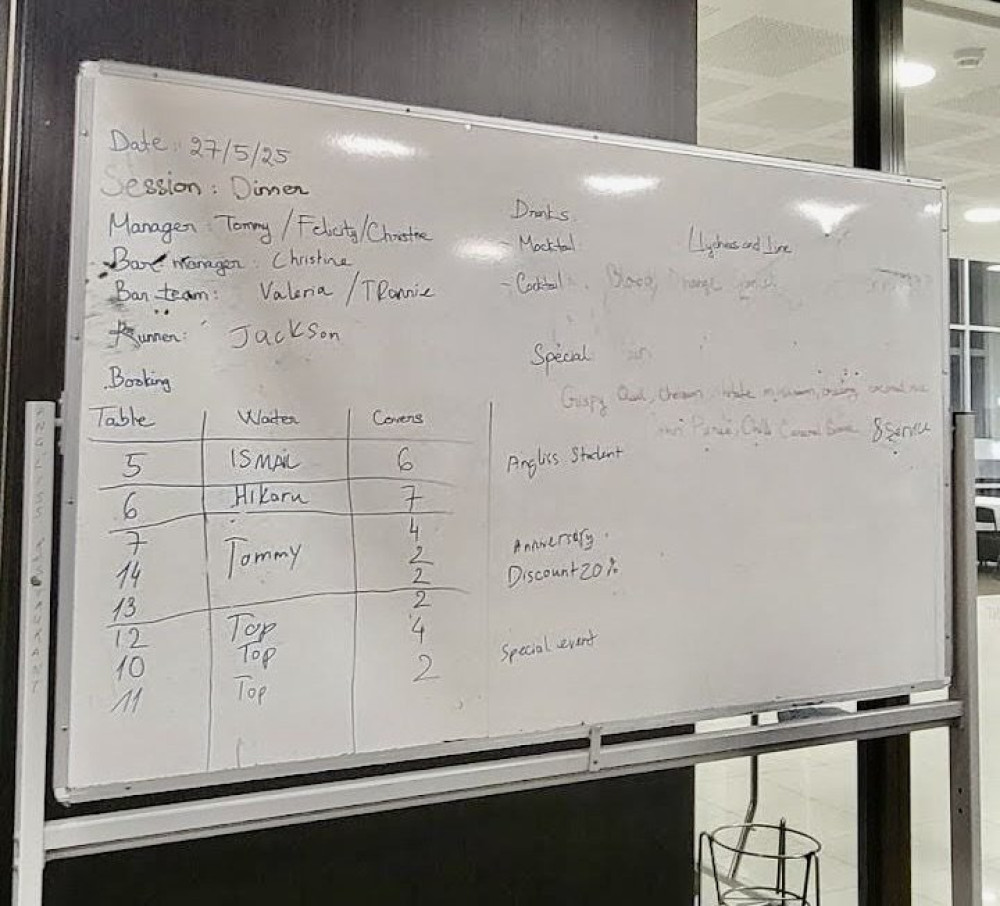 Date: 27/5/25
Session: Dinner
Manager: Tommy / Felicity / Christine
Bar manager: Christine
Bar team: Valeria /
Runner: Jackson
Booking
Drinks:
- Mocktail: Lychees and Lime
- Cocktail: Blood Orange
Special
Crispy
Chilli Caramel 8 Serves
Table Waiter Covers
5 ISMAIL 6 Angliss Student
6 Hikaru 7
7 Tommy 4 Anniversary
14 2
2 Discount 20%
13 2
12 Top 4
10 Top 2 Special event
11 Top
ANGLISS RESTAURANT